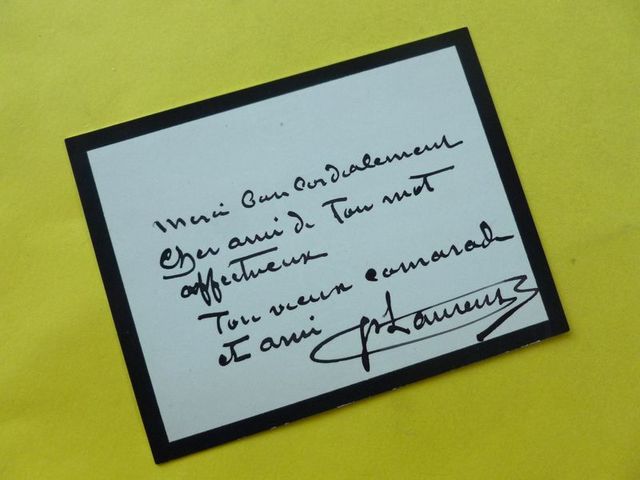 Merci bien cordialement
Cher ami de Ton mot
affectueux
Ton vieux camarade
et ami Laurens